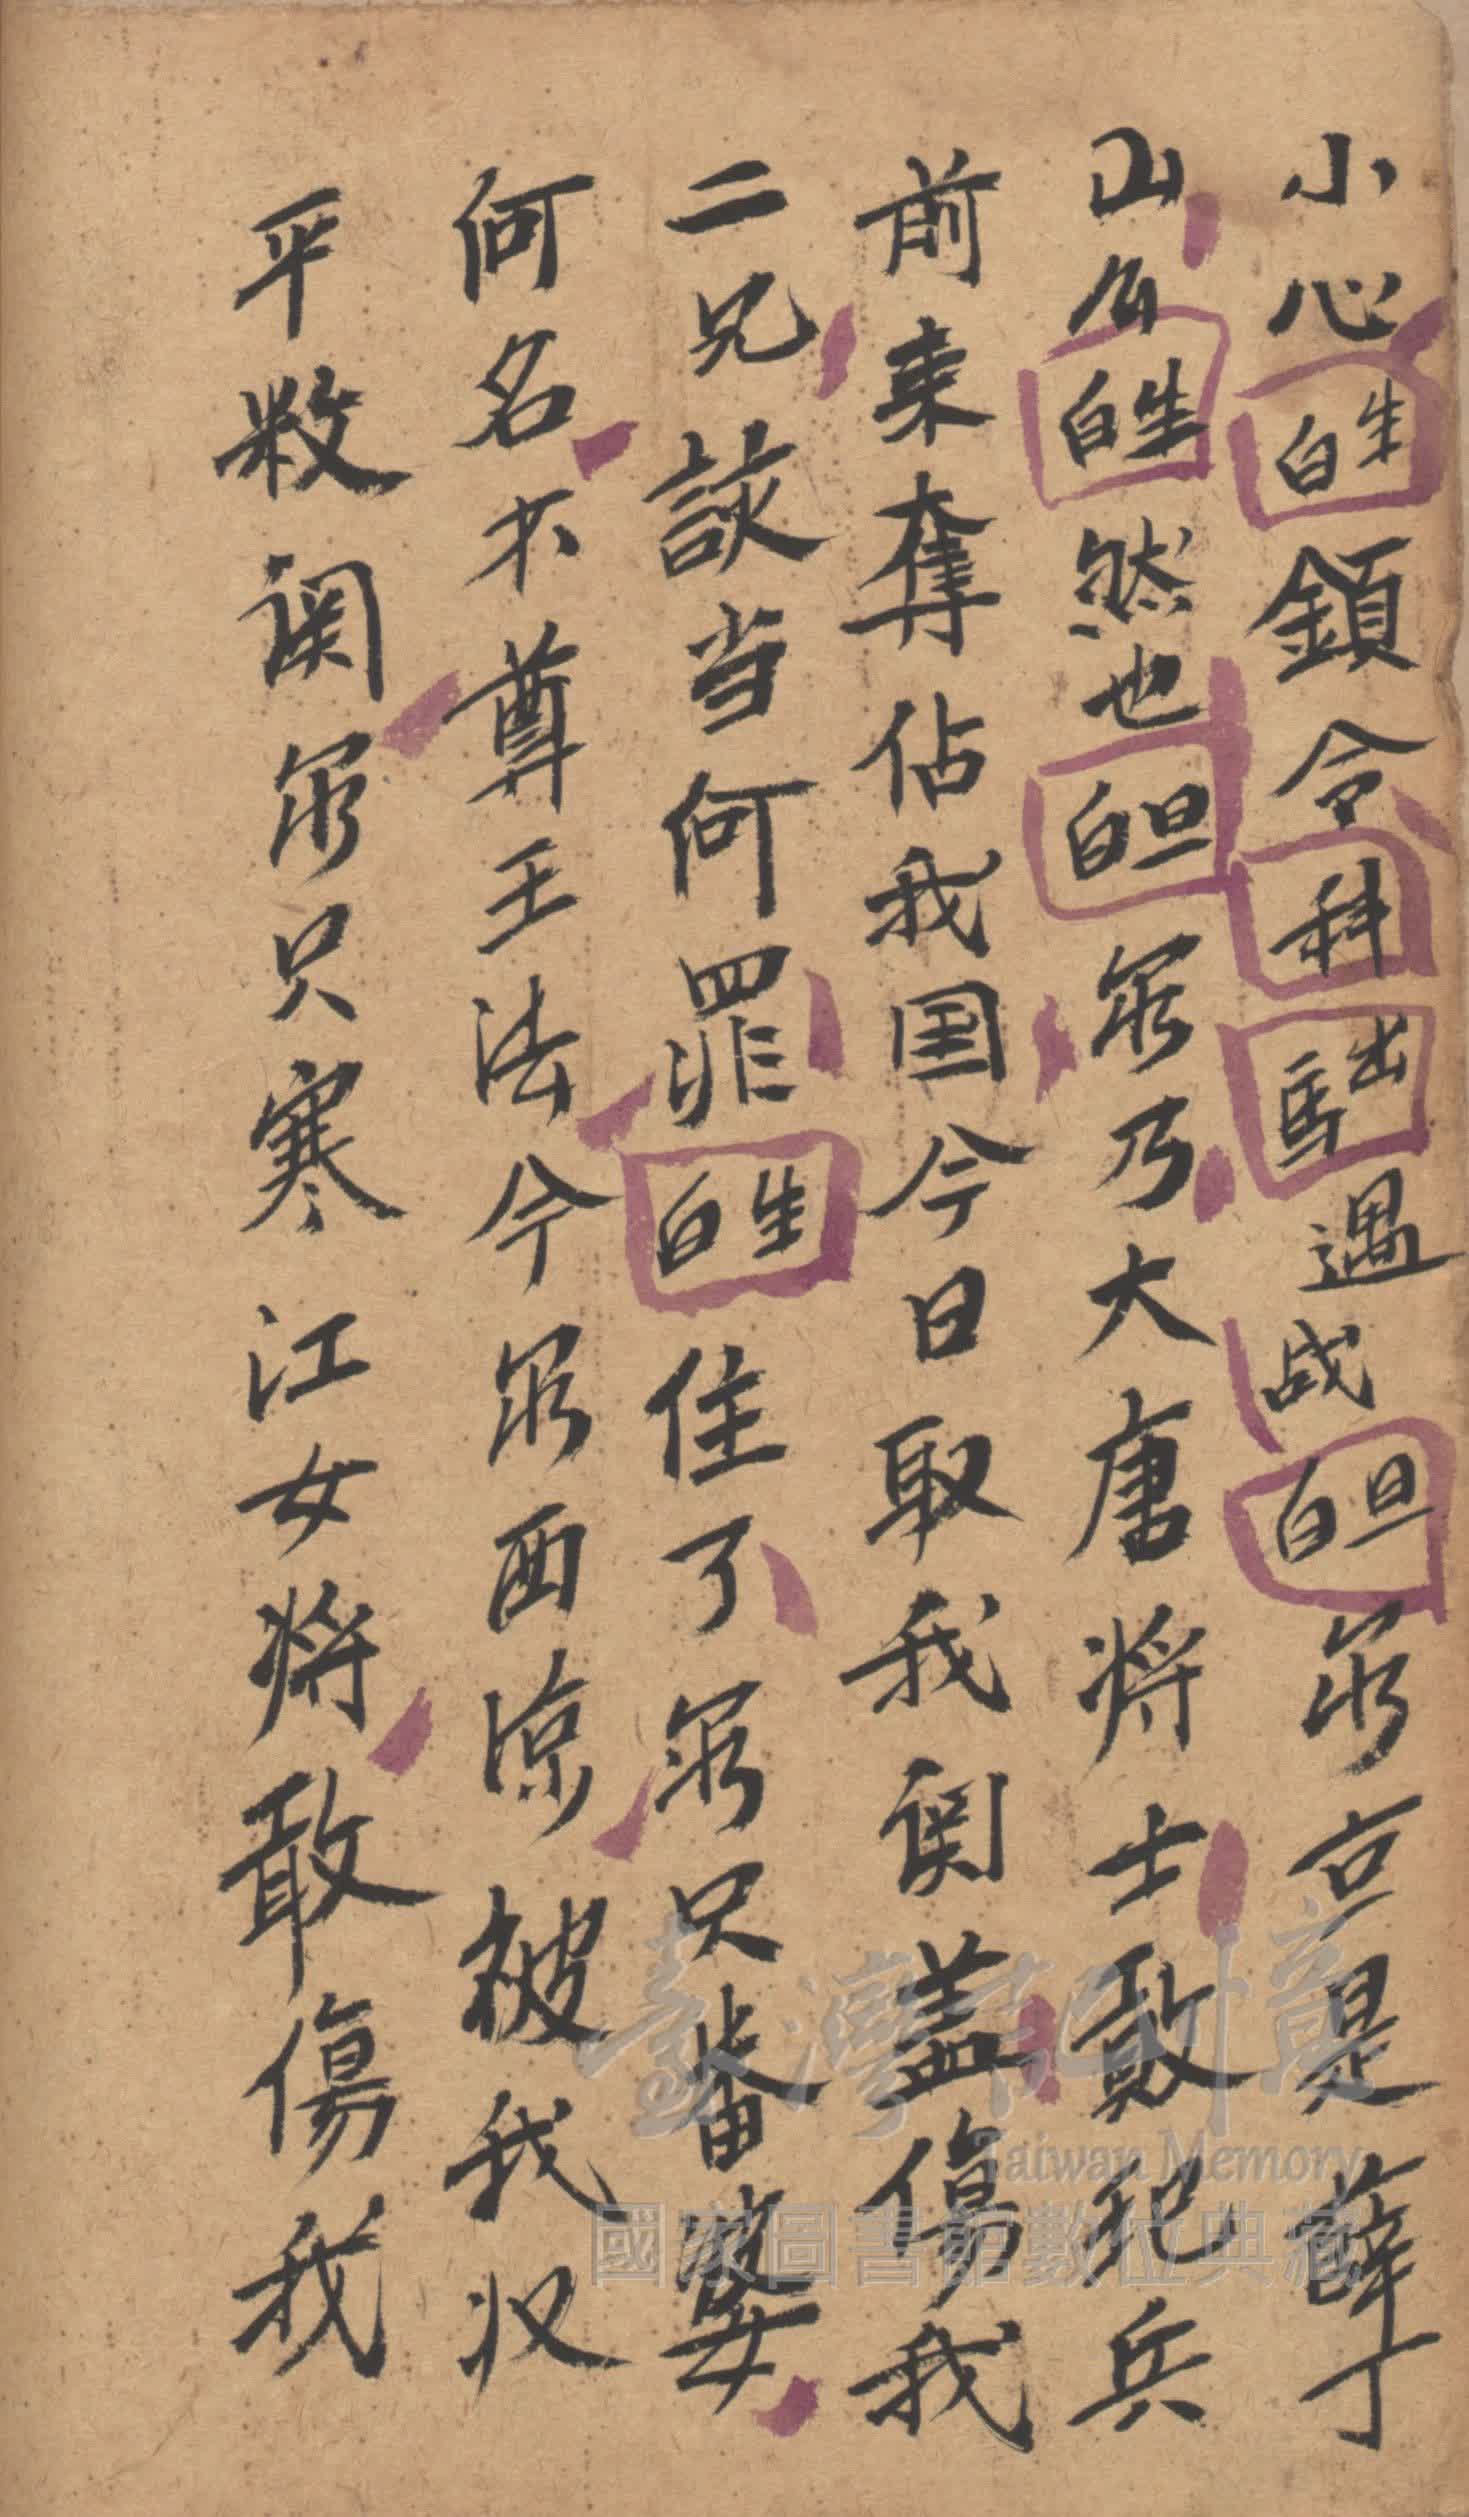 小心生白領令科出馬遇战旦白尔立是薛丁
山么生白然也旦白尔乃大唐将士敢犯兵
前来奪佔我囯今日取我関盖傷我
二兄該当何罪生白住了尔只番婆
何名不尊王法今尔西凉被我収
平数関尔只寒江女将敢傷我
臺灣記憶
Taiwan Memory
國家圖書館數位典藏